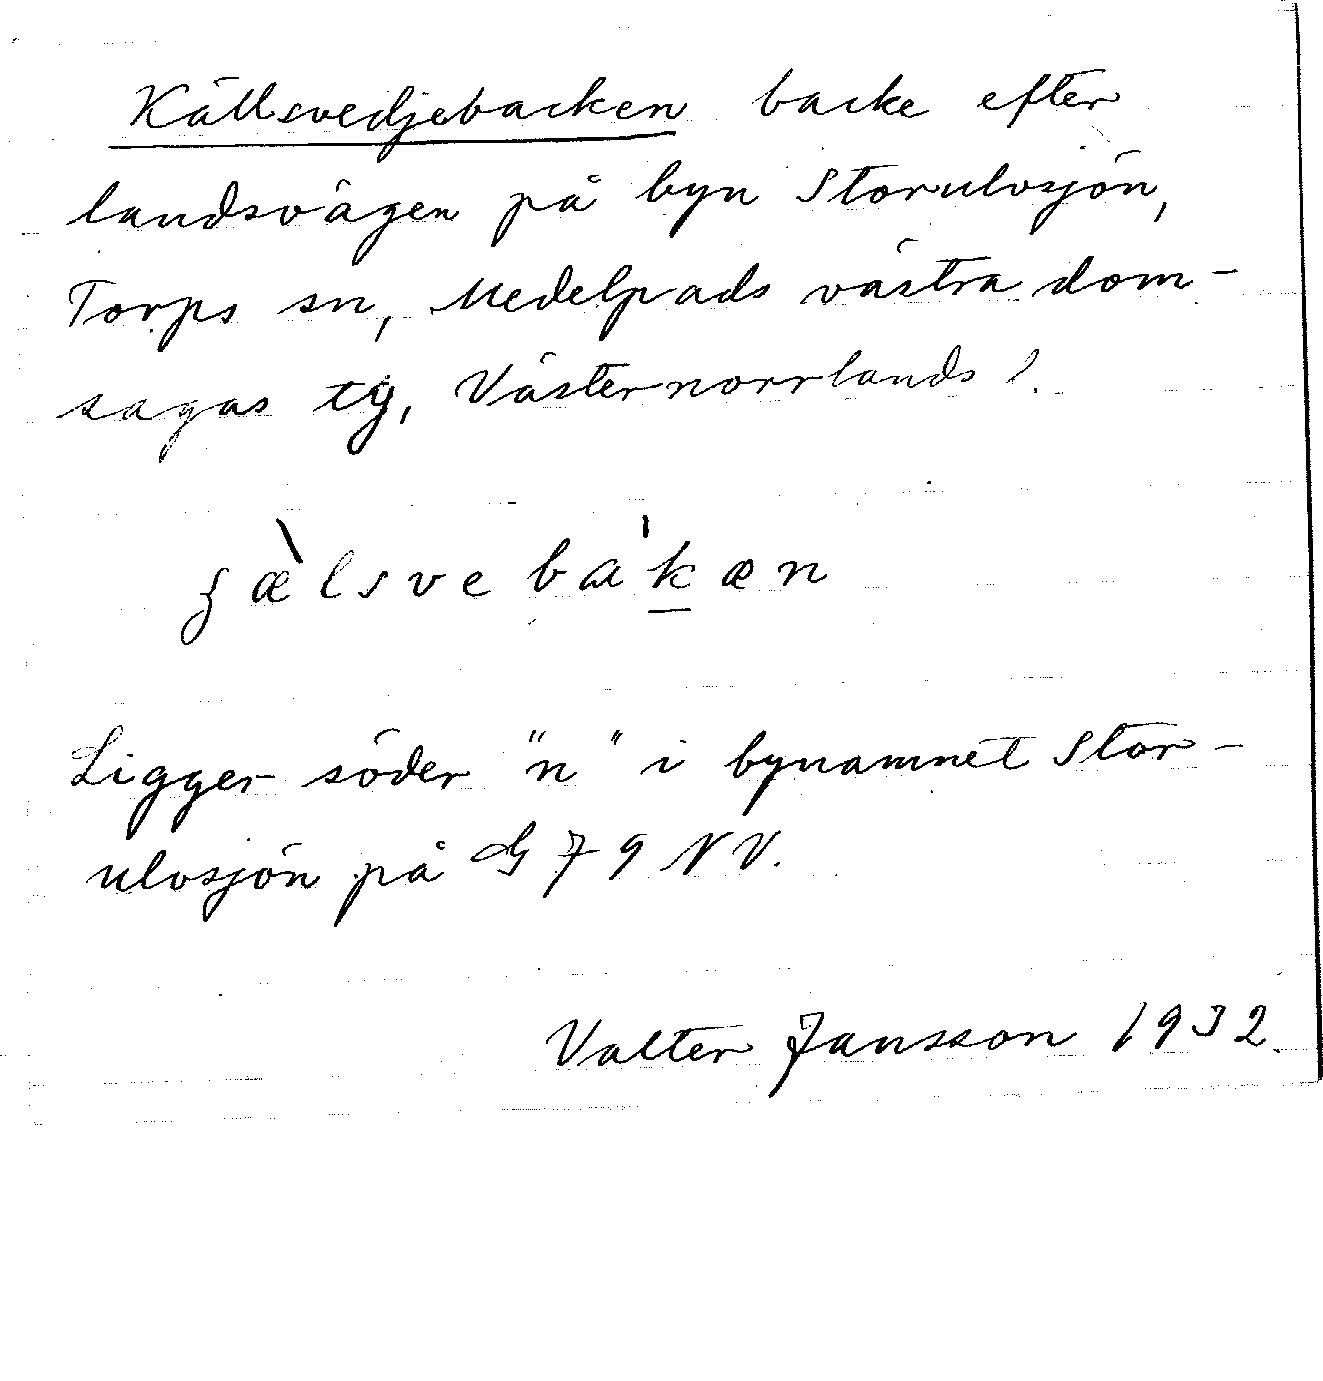 Källsvedjebacken backe efter
landsvägen på byn Storulvsjön,
Torps sn, Medelpads västra dom-
sagas tg, Västernorrlands l.
ʒæ̀lsvebа'k̲æn
Ligger söder "n" i bynamnet Stor-
ulvsjön på G 79 NV.
Valter Jansson 1932